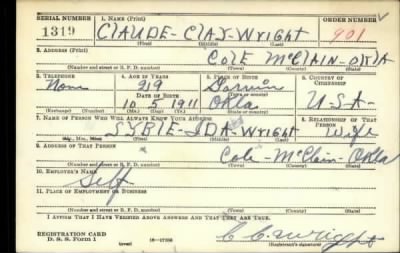 SERIAL NUMBER 1. NAME (Print) ORDER NUMBER
1319 CLAUDE-CLAY-WRIGHT 901
(First) (Middle) (Last)
2. ADDRESS (Print)
COLE McCLAIN-OKLA
(Number and street or R. F. D. number) (Town) (County) (State)
3. TELEPHONE 4. AGE IN YEARS 5. PLACE OF BIRTH 6. COUNTRY OF CITIZENSHIP
None
DATE OF BIRTH (Town or county)
10 5 1911 Okla U-S-A-
(Exchange) (Number) (Mo.) (Day) (Yr.) (State or country)
7. NAME OF PERSON WHO WILL ALWAYS KNOW YOUR ADDRESS 8. RELATIONSHIP OF THAT PERSON
SYBLE-IDA-Wright Wife
(Mr., Mrs., Miss) (First) (Middle) (Last)
9. ADDRESS OF THAT PERSON
Cole-McClain-Okla
(Number and street or R. F. D. number) (Town) (County) (State)
10. EMPLOYER'S NAME
Self
11. PLACE OF EMPLOYMENT OR BUSINESS
(Number and street or R. F. D. number) (Town) (County) (State)
I AFFIRM THAT I HAVE VERIFIED ABOVE ANSWERS AND THAT THEY ARE TRUE.
REGISTRATION CARD
D. S. S. Form 1 (over) 16—17105 C. C. Wright
(Registrant's signature)